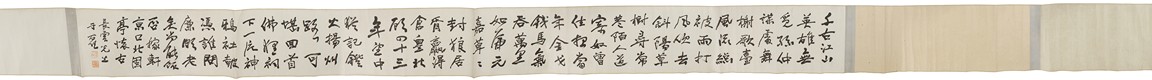 千古江山
英雄無
覓孫仲
謀處舞
榭歌臺
風流總
被雨打
風吹去
斜陽草
樹尋常
巷陌人道
寄奴曾
住想當
年金戈
鐵馬氣
吞萬里
如虎元
嘉草草
封狼居
胥贏得
倉皇北
顧四十三
年望中
猶記
火揚州
路可
堪回首
佛狸祠
下一片神
鴉社鼓
憑誰問
廉頗老
矣尚能飯
否稼軒
京口北固
亭懷古